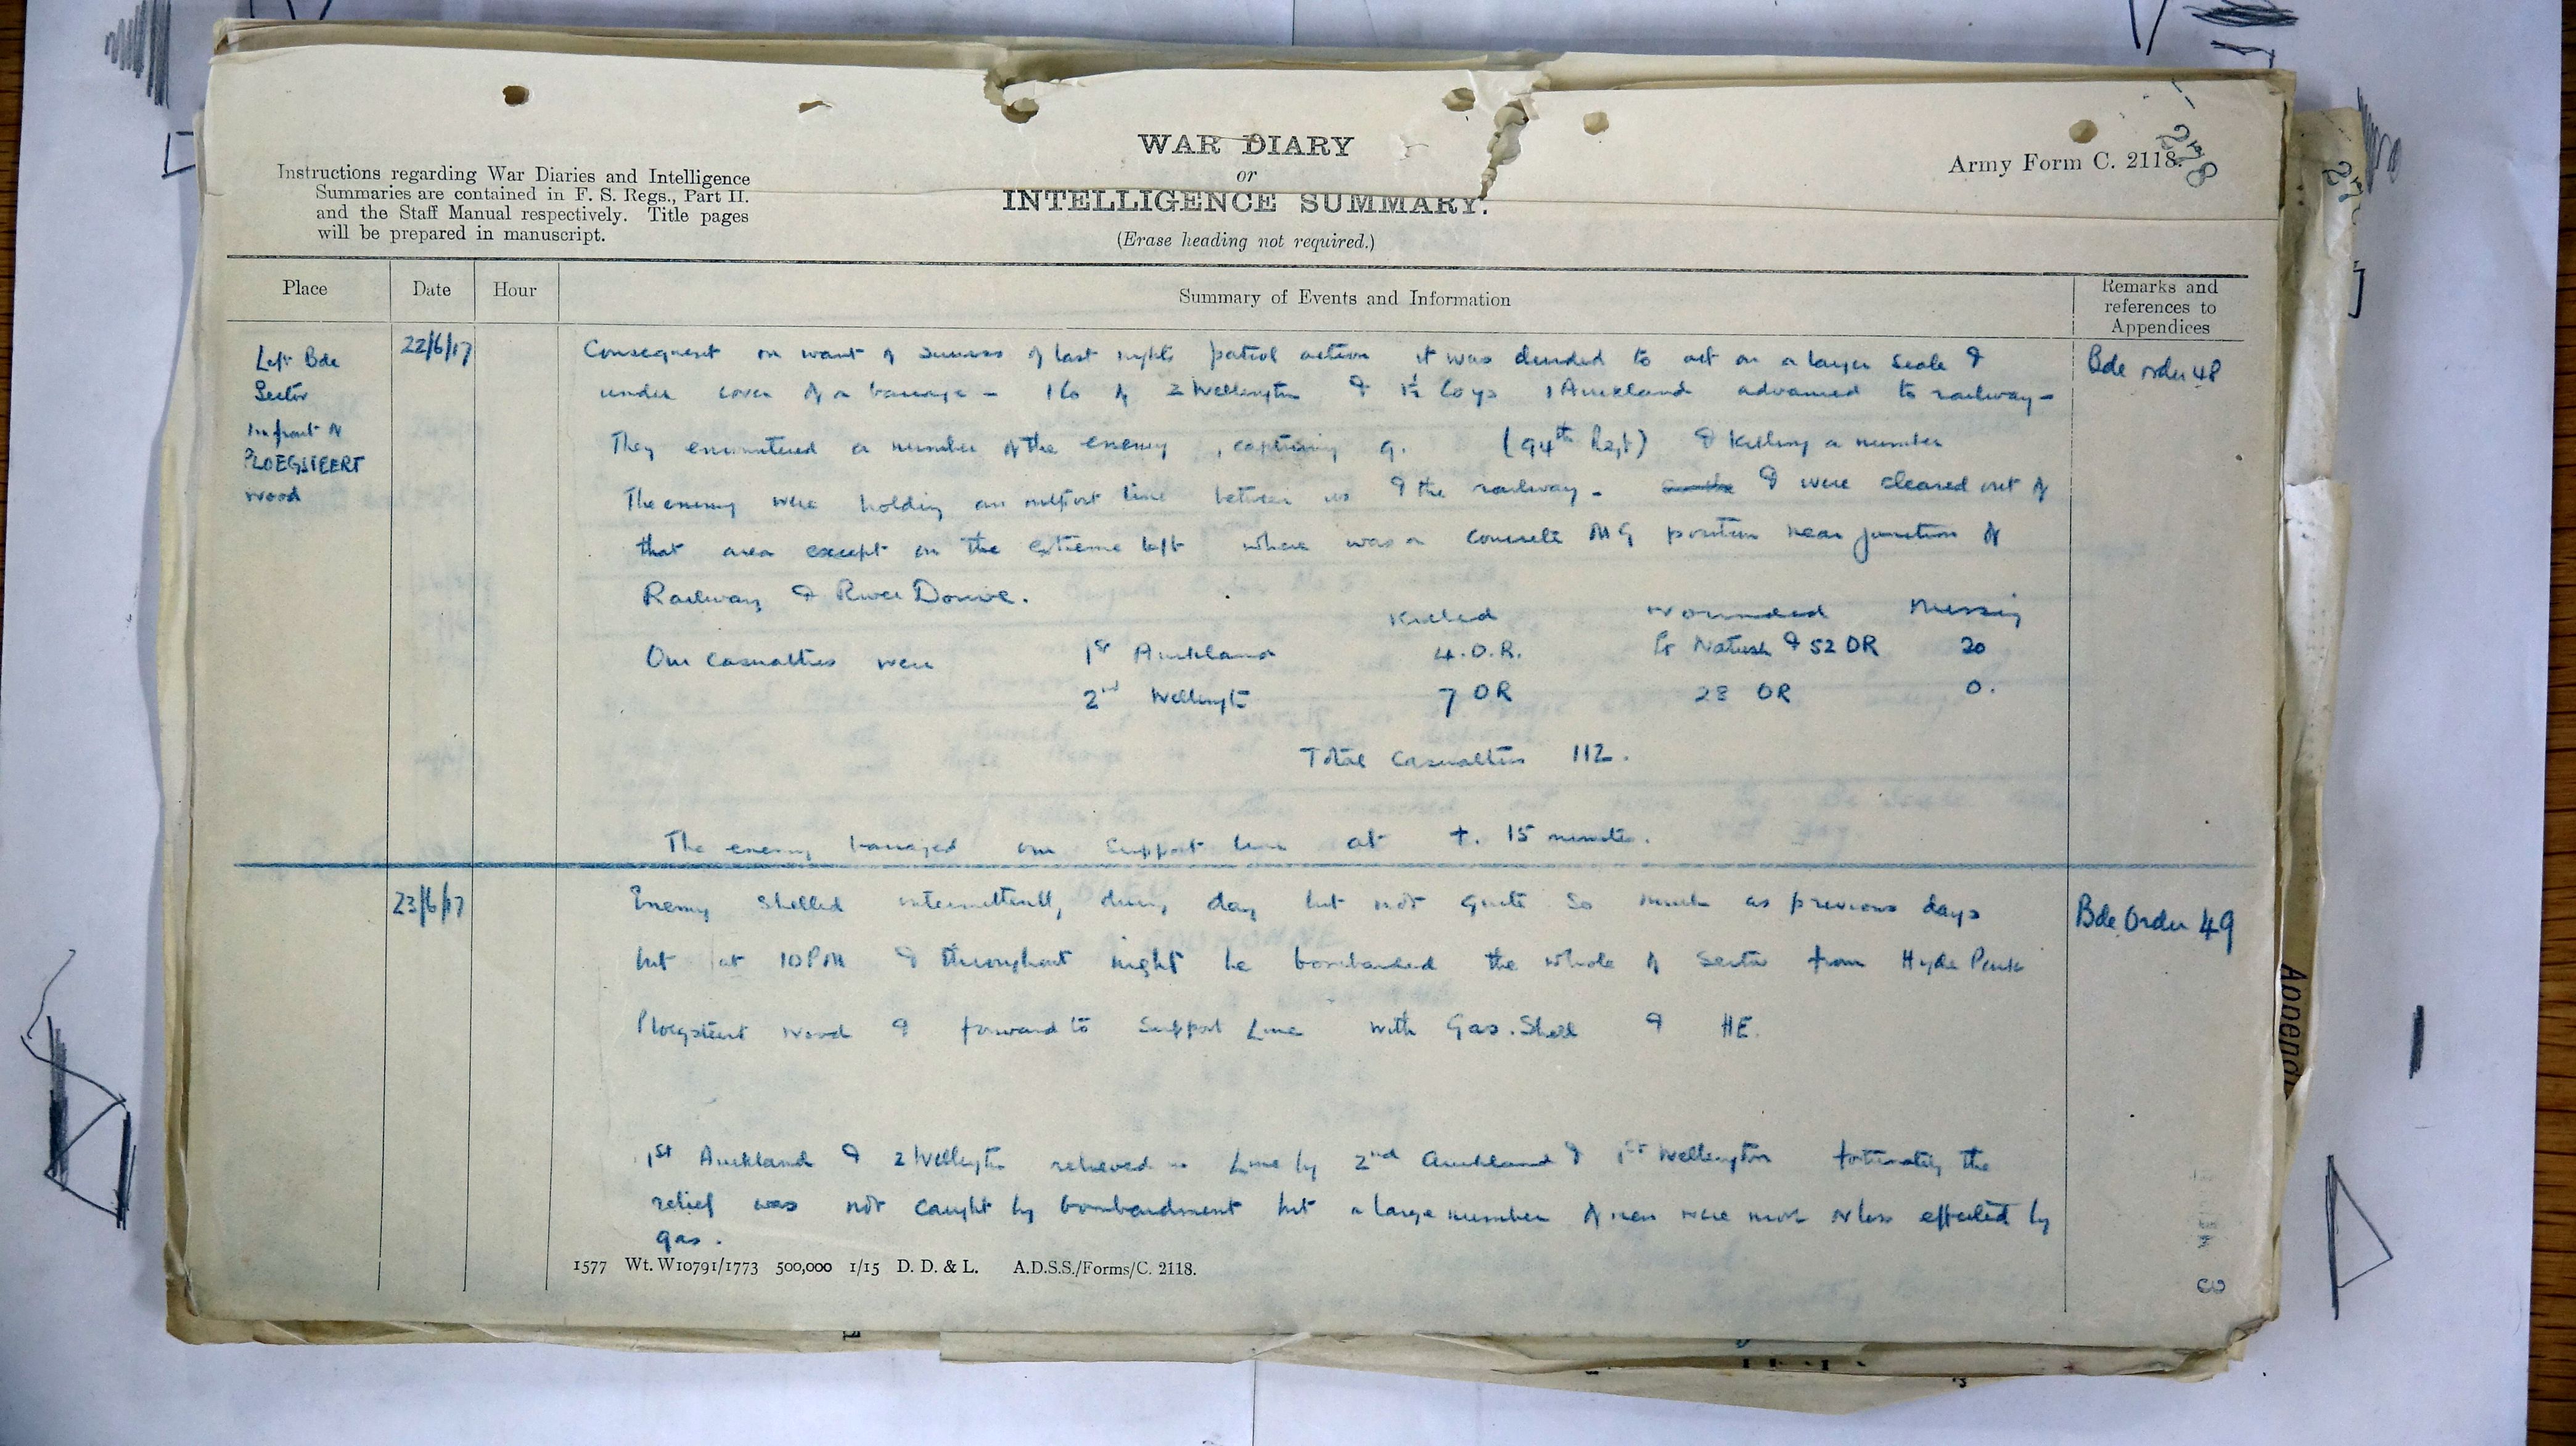 WAR DIARY
or
INTELLIGENCE SUMMARY.
(Erase heading not required.)
Instructions regarding War Diaries and Intelligence
Summaries are contained in F. S. Regs., Part II.
and the Staff Manual respectively. Title pages
will be prepared in manuscript.
Army Form C. 2118.
278
Place
Date
Hour
Summary of Events and Information
Remarks and
references to
Appendices
Left Bde
Sector
In front of
PLOEGSTEERT
Wood
22/6/17
Consequent on want of success of last nights patrol action it was decided to act on a larger scale &
under cover of a barrage - 1 Co of 2 Wellington & 1½ Coys 1 Auckland advanced to railway -
They encountered a number of the enemy, capturing 9. (94th Regt) & killing a number
The enemy were holding an outpost line between us & the railway - & were cleared out of
that area except on the extreme left where was a concrete MG position near junction of
Railway & River Douve.
Killed Wounded Missing
Our casualties were 1st Auckland 4. O.R. Lt Natush & 52 OR 20
2nd Wellingt 7 OR 28 OR 0.
Total Casualties 112.
The enemy barraged our support line at +. 15 minutes.
Bde order 48
23/6/17
Enemy shelled intermittently during day but not quite so much as previous days
but at 10PM & throughout night he bombarded the whole of sector from Hyde Park
Ploegsteert Wood & forward to Support Line with Gas. Shell & HE.
Bde Order 49
1st Auckland & 2 Wellington relieved in Line by 2nd Auckland & 1st Wellington fortunately the
relief was not caught by bombardment but a large number of men were more or less effected by
gas.
1577 Wt. W10791/1773 500,000 1/15 D. D. & L. A.D.S.S./Forms/C. 2118.